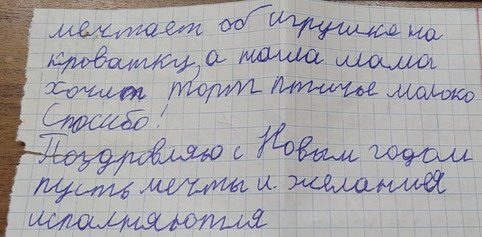 мечтает об игрушке на
кроватку, а наша мама
хочит торт птичье молоко
Спосибо!
Поздровляю с Новым годом
пусть мечты и желания
исполняются